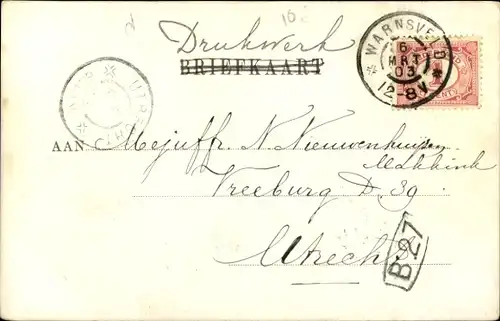 10
Drukwerk
BRIEFKAART
WARNSVELD
6
MRT
03
12-8V
UTRECHT
AAN Mejuffr. N. Nieuwenhuijzen
Makkink
Vreeburg D. 39
Utrecht
B27